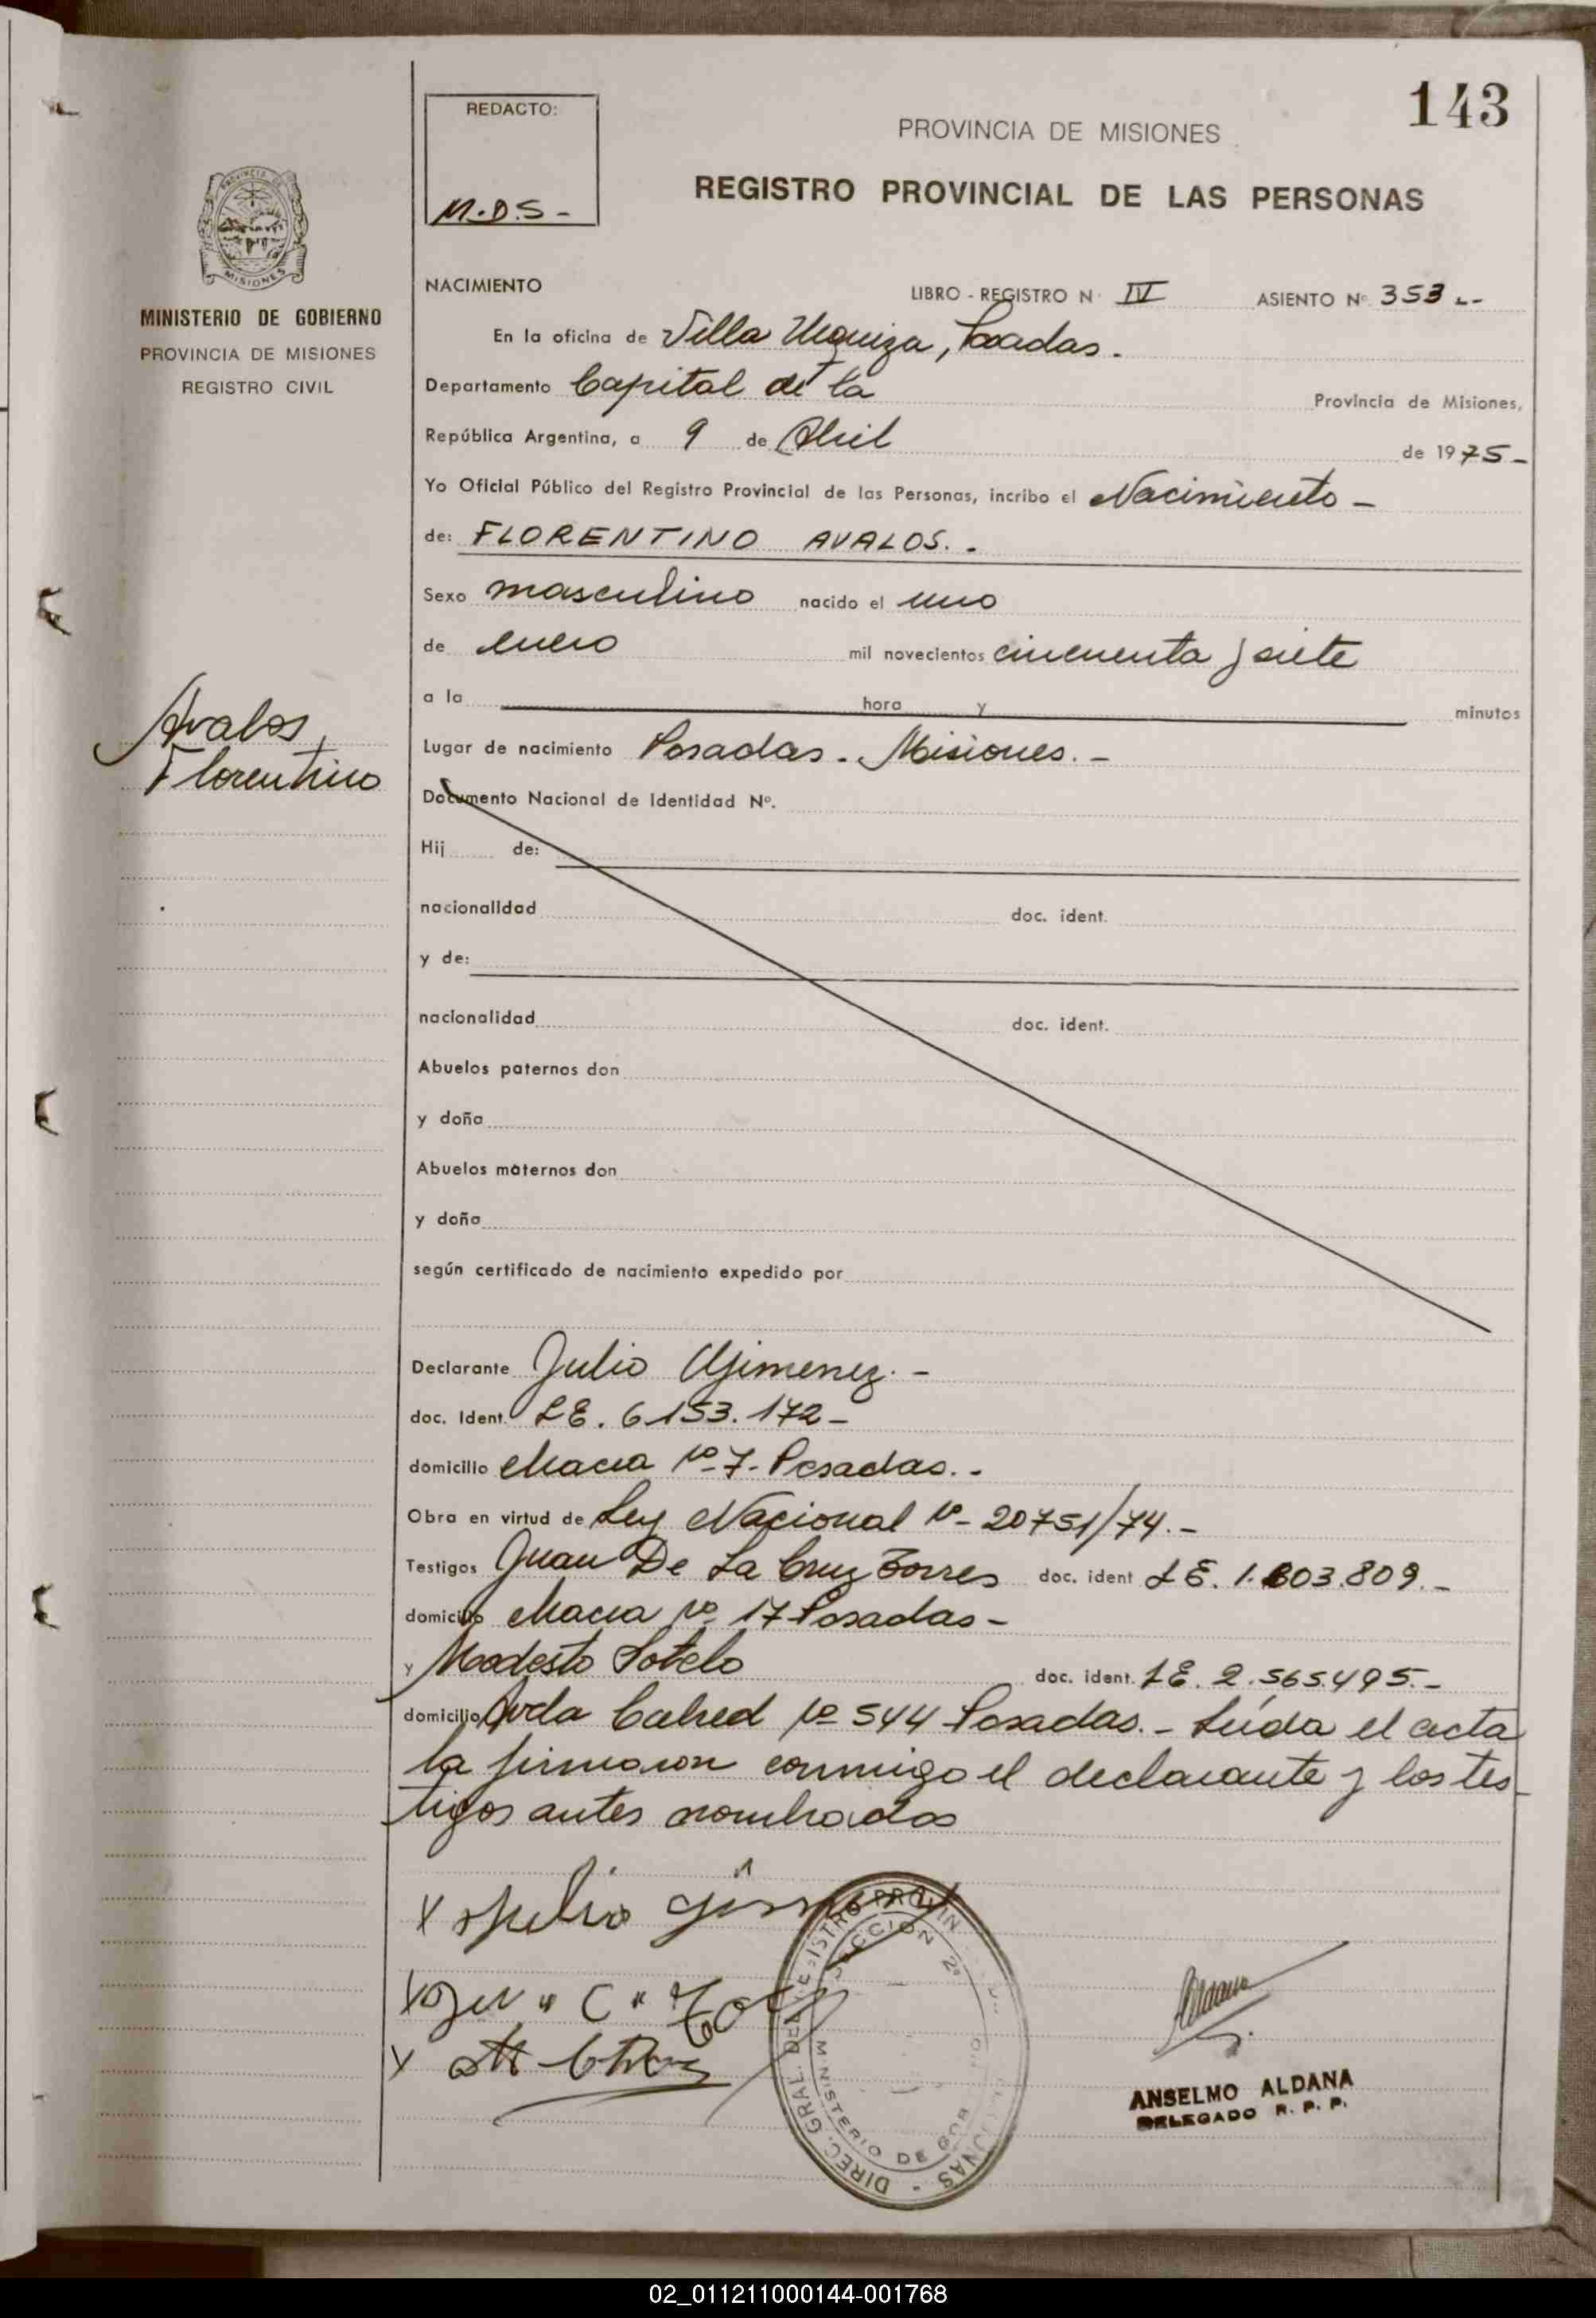 143
REDACTO:
M.D.S-
PROVINCIA DE MISIONES
REGISTRO PROVINCIAL DE LAS PERSONAS
PROVINCIA DE
MISIONES
MINISTERIO DE GOBIERNO
PROVINCIA DE MISIONES
REGISTRO CIVIL
NACIMIENTO LIBRO - REGISTRO N° IV ASIENTO N° 353.-
En la oficina de Villa Urquiza, Posadas.
Departamento Capital de la Provincia de Misiones,
República Argentina, a 9 de Abril de 1975-
Yo Oficial Público del Registro Provincial de las Personas, incribo el Nacimiento-
de: FLORENTINO AVALOS.-
Sexo masculino nacido el uno
de enero mil novecientos cincuenta y siete
a la hora y minutos
Avalos,
Florentino
Lugar de nacimiento Posadas-. Misiones.-
Documento Nacional de Identidad N°.
Hij de:
nacionalidad doc. ident.
y de:
nacionalidad doc. ident.
Abuelos paternos don
y doña
Abuelos maternos don
y doña
según certificado de nacimiento expedido por
Declarante Julio Gimenez.-
doc. Ident. LE. 6153.172-
domicilio Chacra N°-7- Posadas.-
Obra en virtud de Ley Nacional N°- 20751/74.-
Testigos Juan De La Cruz Torres doc. ident LE. 1.603.809.-
domicilio Chacra N° 17 Posadas-
y Modesto Sotelo doc. ident. LE. 2.565.495.-
domicilio Avda Cabred N° 544 Posadas.- Leída el acta
la firmaron conmigo el declarante y los tes-
tigos antes nombrados
x Julio
DIREC. GRAL. DEL REGISTRO PROVIN
SECCION 2ª
MINISTERIO DE GOB
ANSELMO ALDANA
DELEGADO R. P. P.
02_011211000144-001768